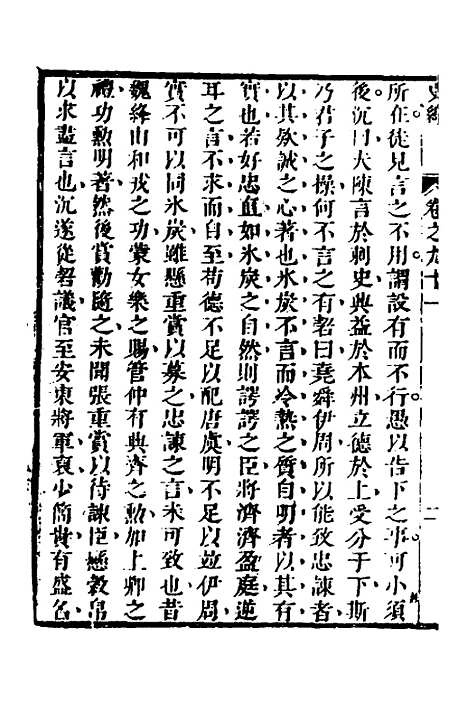 史緯　卷之九十一　二
所在徒見言之不用謂設有而不行愚以告下之事可小須
後沉曰夫陳言於刺史興益於本州立德於上受分于下斯
乃君子之操何不言之有磐曰堯舜伊周所以能致忠諫者
以其欵誠之心著也氷炭不言而冷熱之質自明者以其有
實也若好忠直如氷炭之自然則諤諤之臣將濟濟盈庭逆
耳之言不求而自至苟德不足以配唐虞明不足以並伊周
實不可以同氷炭雖懸重賞以募之忠諫之言未可致也昔
魏絳由和戎之功蒙女樂之賜管仲有興齊之勳加上卿之
禮功勲明著然後賞勸隨之未聞張重賞以待諫臣懸穀帛
以求盡言也沉遂從磐議官至安東將軍裒少簡貴有盛名